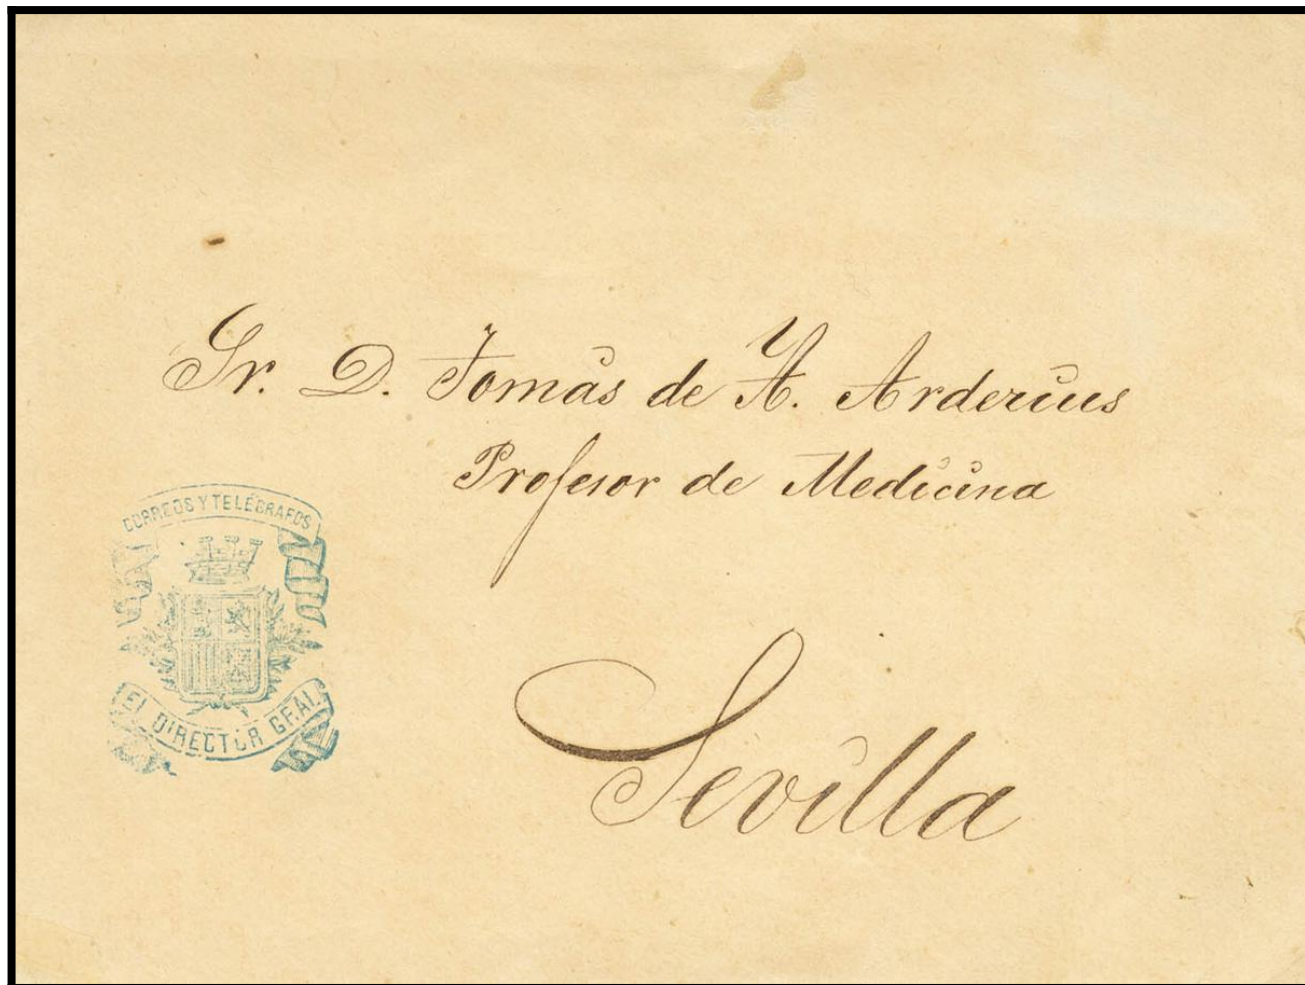 Sr. D. Tomás de A. Arderíus
Profesor de Medicina
CORREOS Y TELÉGRAFOS
EL DIRECTOR GRAL
Sevilla